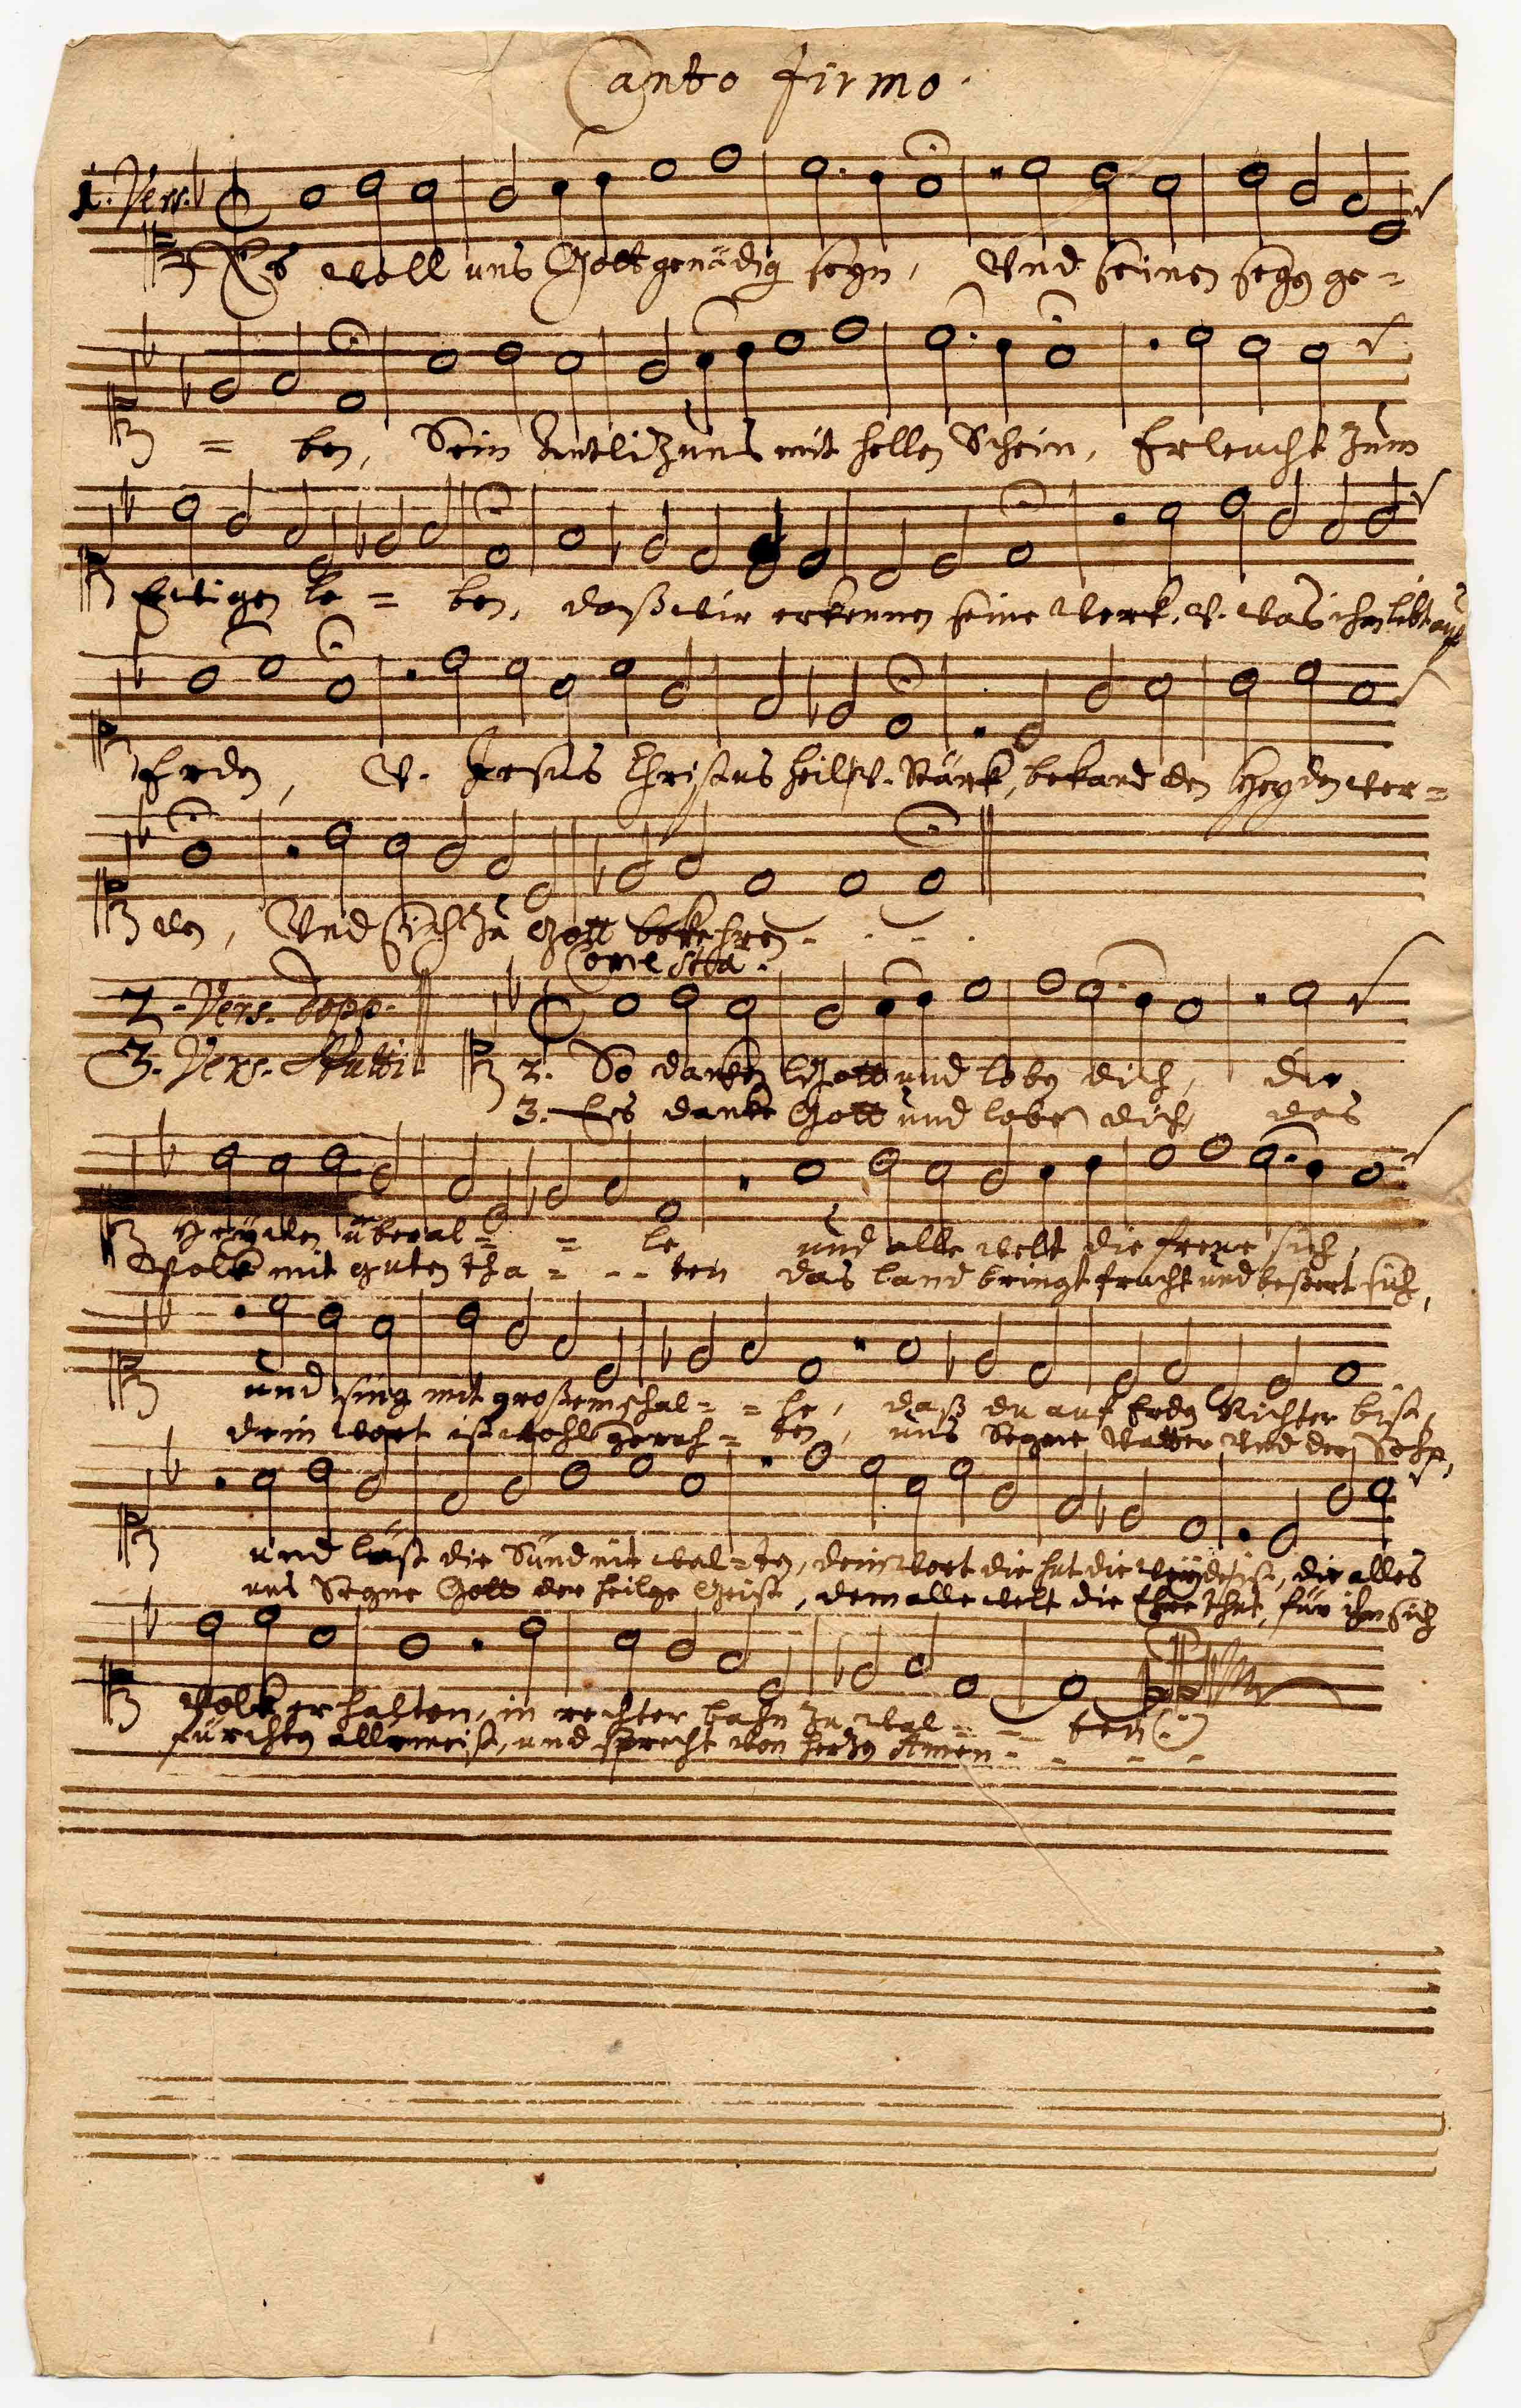 Canto firmo.
1. Vers.
Es woll uns Gott genädig seyn, Und seinen segen ge=
= ben, Sein Antlitz uns mit hellen Schein, Erleucht zum
Ewigen le = ben, daß wir erkennen seine werk, V. was ihm liebt auf
Erden, V. Jesus Christus heil V. Stärk, bekand den Heyden wer=
den, Und sich zu Gott bekehren - - - -
Come sta.
2. Vers. dopp.
3. Vers. Tutti
2. So danken Gott und loben dich, die
3. Es danke Gott und lobe dich das
Heyden überal= = le und alle welt die freue sich,
Volk mit guten tha = - - ten das land bringt frucht und beßert sich,
und sing mit großem schal= = le, daß du auf Erden Richter bist,
dein wort ist wohl gerah = ten, uns Segne Vatter und der Sohn,
und läst die Sünd nit wal=ten, dein wort die hut die weyde ist, die alles
uns Segne Gott der heilge Geist, dem alle welt die Ehre thut, für ihm sich
Volk erhalten, in rechter bahn zu wal= - ten
fürchten allermeist, und sprecht von hertzen Amen - - - -